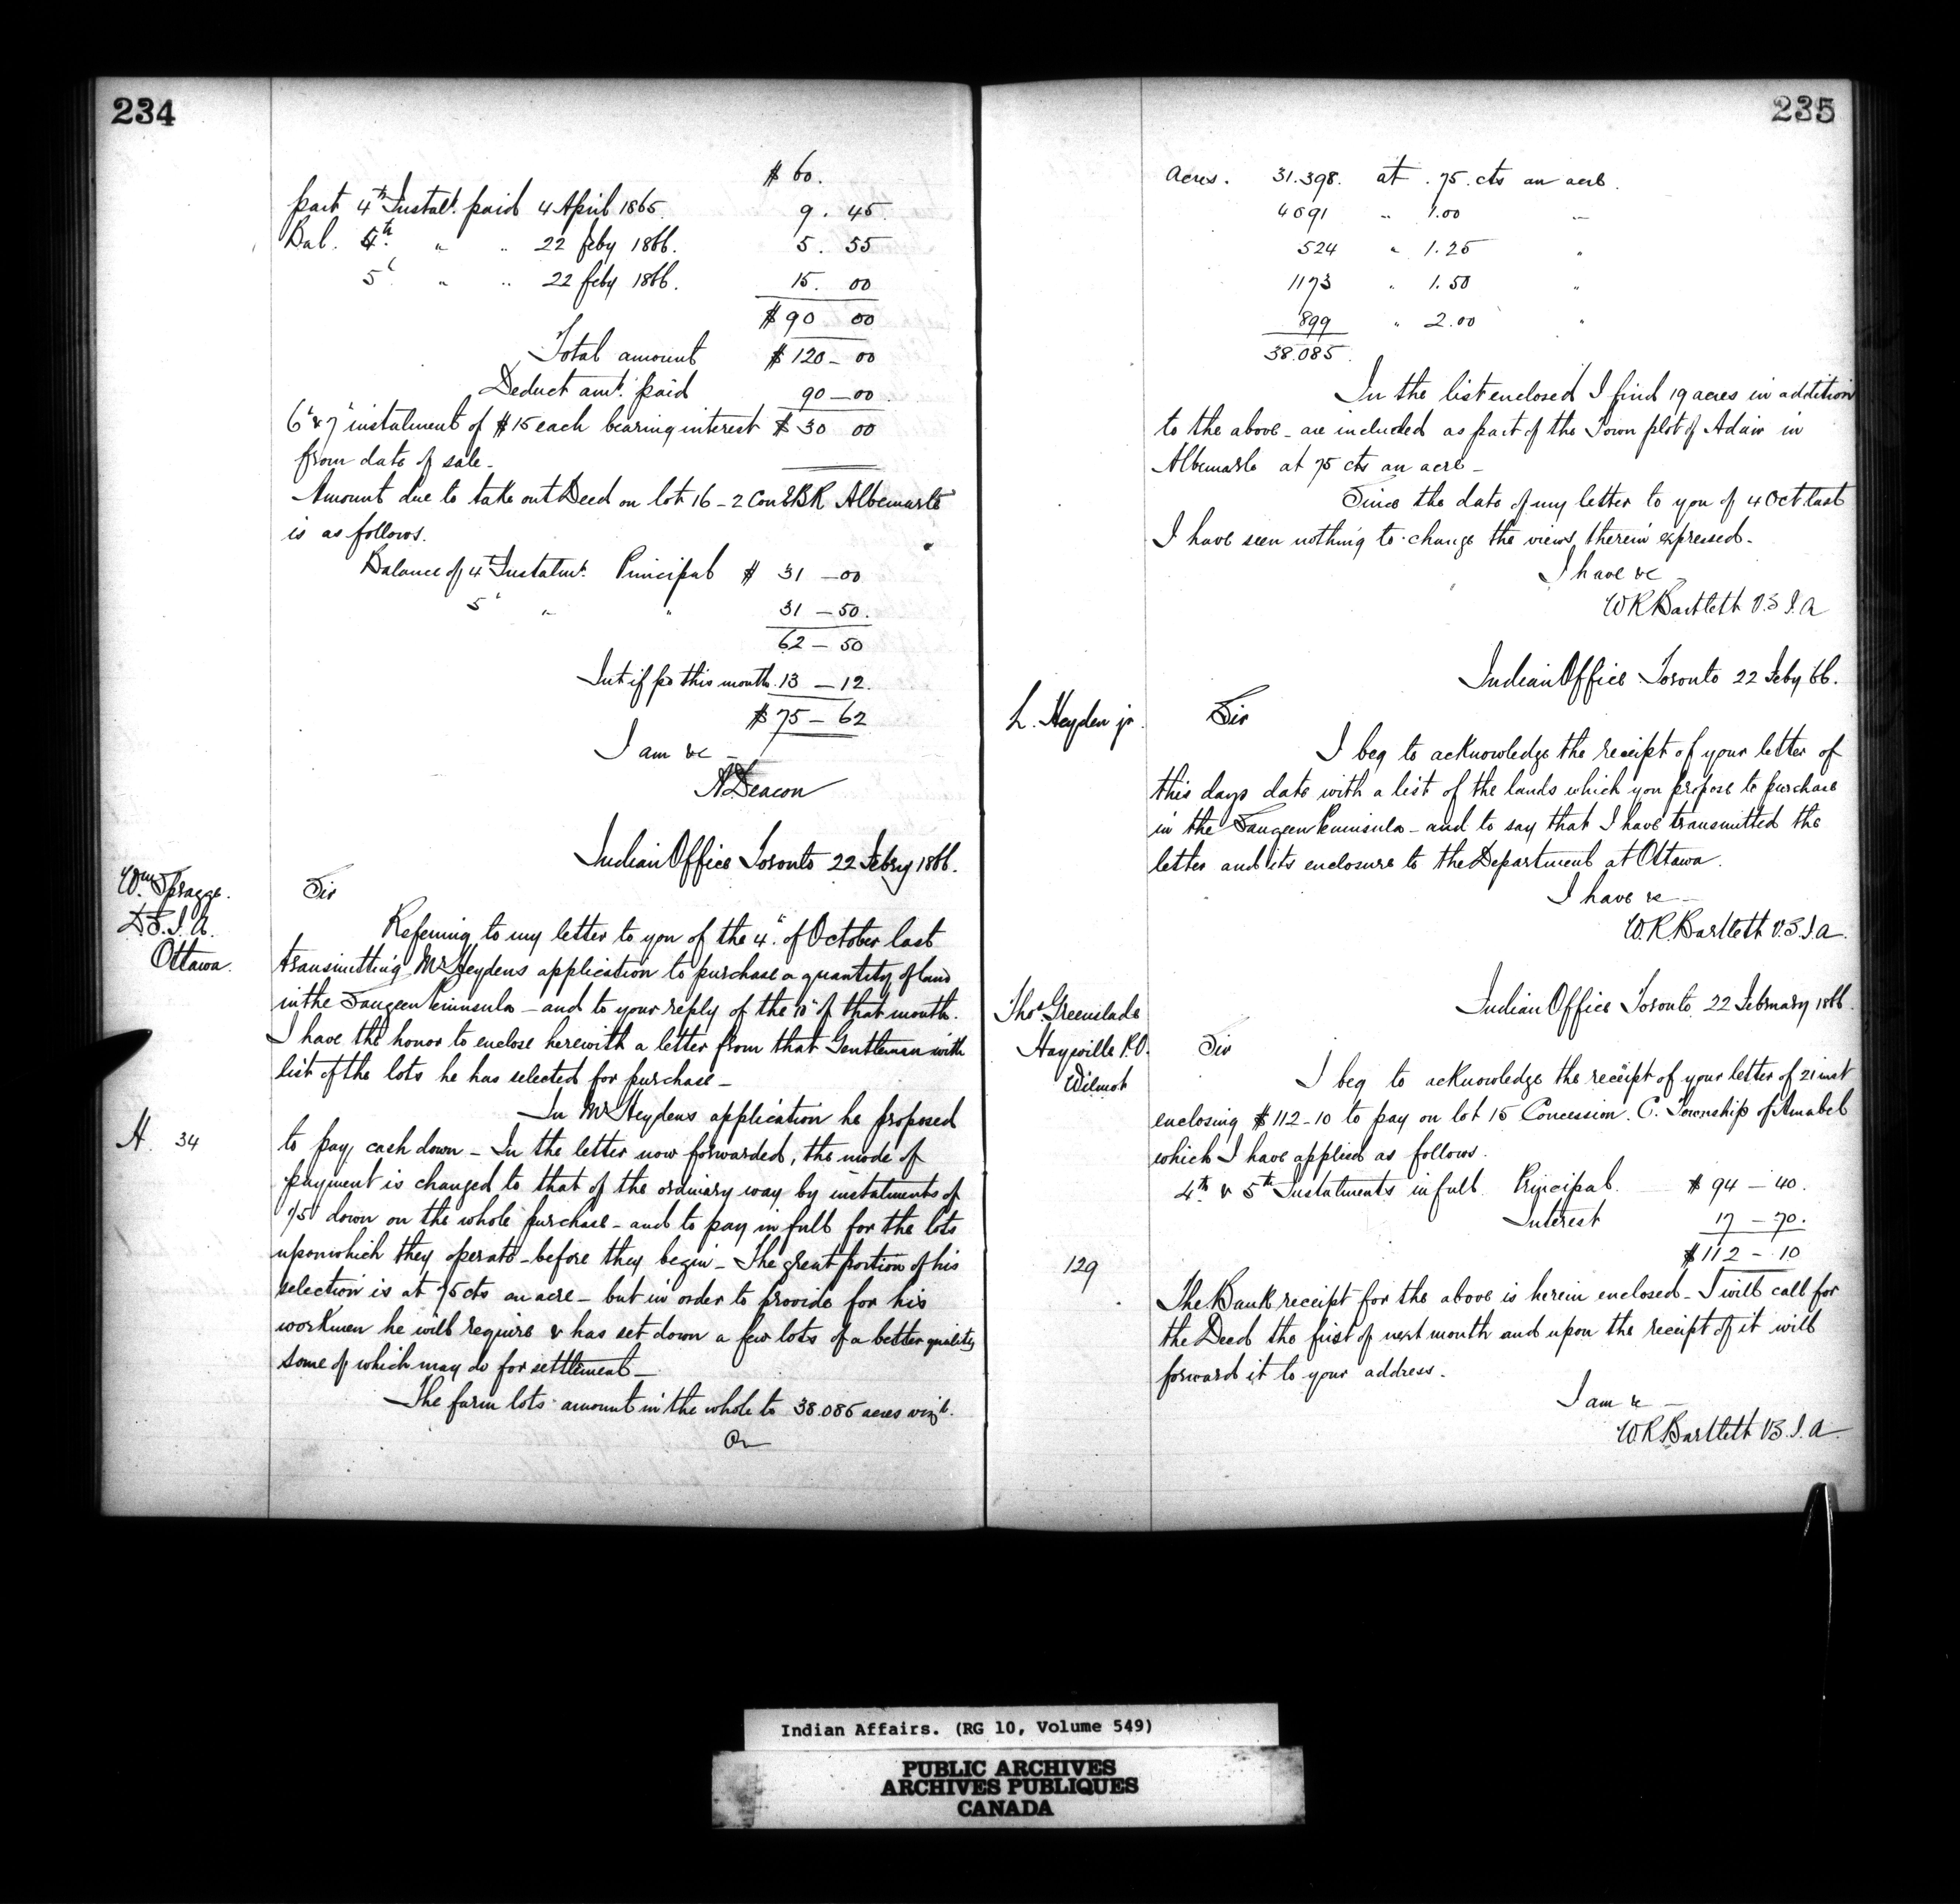 234
$ 60.
part 4th Instalt. paid 4 April 1865. 9. 45
Bal. 4th. " " 22 feby 1866. 5. 55
5th " " 22 feby 1866. 15. 00
$ 90 00
Total amount $ 120 - 00
Deduct amt. paid 90 - 00
6th & 7th instalment of $15 each bearing interest $ 30 00
from date of sale -
Amount due to take out Deed on lot 16 - 2 Con EBR Albemarle
is as follows.
Balance of 4th Instalmt. Principal $ 31 - 00
5th " " 31 - 50.
62 - 50
Int if pd this month. 13 - 12.
$ 75 - 62
I am &c -
A Deacon
Indian Office Toronto 22 Febry 1866.
Wm Spragge.
D.S.I.A.
Ottawa.
Sir
Referring to my letter to you of the 4th of October last
transmitting Mr Heydens application to purchase a quantity of land
in the Saugeen Peninsula - and to your reply of the 10th of that month.
I have the honor to enclose herewith a letter from that Gentleman with
list of the lots he has selected for purchase -
In Mr Heydens application he proposed
H. 34
to pay cash down - In the letter now forwarded, the mode of
payment is changed to that of the ordinary way by instalments of
1/5 down on the whole purchase - and to pay in full for the lots
upon which they operate - before they begin - The great portion of his
selection is at 75 cts an acre - but in order to provide for his
workmen he will require & has set down a few lots of a better quality
some of which may do for settlement -
The farm lots amount in the whole to 38.085 acres vizt.
235
Acres. 31.398. at .75. cts an acre.
4091 " 1.00 "
524 " 1.25 "
1173 " 1.50 "
899 " 2.00 "
38.085.
In the list enclosed I find 19 acres in addition
to the above - are included as part of the Town plot of Adair in
Albemarle at 75 cts an acre -
Since the date of my letter to you of 4 Oct. last
I have seen nothing to change the views therein expressed -
I have &c
W R Bartlett V.S I. A
Indian Office Toronto 22 Feby 66.
L. Heyden jr.
Sir
I beg to acknowledge the receipt of your letter of
this days date with a list of the lands which you propose to purchase
in the Saugeen Peninsula - and to say that I have transmitted the
letter and its enclosure to the Department at Ottawa.
I have &c -
W. R. Bartlett V.S.I.A.
Indian Office Toronto 22 February 1866.
Thos. Greenslade
Haysville P.O.
Wilmot
Sir
I beg to acknowledge the receipt of your letter of 21 inst
enclosing $112-10 to pay on lot 15 Concession. C. Township of Amabel
which I have applied as follows.
4th & 5th Instalments in full Principal. $ 94 - 40.
Interest 17 - 70.
$ 112 - 10
129
The Bank receipt for the above is herein enclosed - I will call for
the Deed the first of next month and upon the receipt of it will
forward it to your address.
I am &c -
W R Bartlett VS. I. A.
Indian Affairs. (RG 10, Volume 549)
PUBLIC ARCHIVES
ARCHIVES PUBLIQUES
CANADA